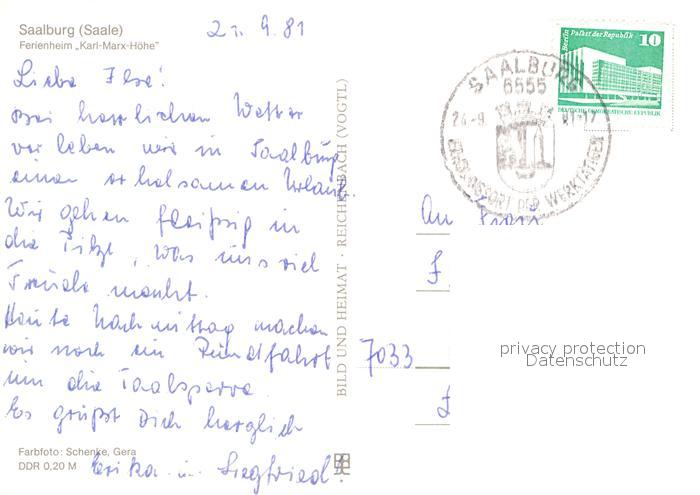 Saalburg (Saale)
Ferienheim „Karl-Marx-Höhe"
21. 9. 81
Liebe Ilse!
Bei herrlichem Wetter
verleben wir in Saalburg
einen erholsamen Urlaub.
Wir gehen fleißig in
die Pilze, was uns viel
Freude macht.
Heute Nachmittag machen
wir noch ein Rundfahrt
um die Talsperre.
Es grüßt Dich herzlich
Erika u. Siegfried!
Farbfoto: Schenke, Gera
DDR 0,20 M
BILD UND HEIMAT · REICHENBACH (VOGTL)
Berlin Palast der Republik
10
DEUTSCHE DEMOKRATISCHE REPUBLIK
SAALBURG
6555
ERHOLUNGSORT DER WERKTÄTIGEN
An Frau
7033
privacy protection
Datenschutz